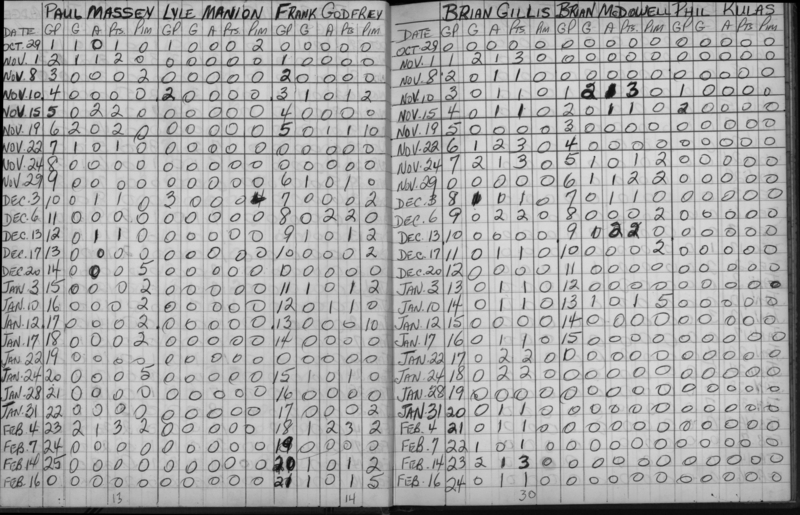 PAUL MASSEY LYLE MANION FRANK GODFREY
DATE GP G A Pts. Pim GP G A Pts. Pim GP G A Pts. Pim
OCT. 29 1 1 0 1 0 1 0 0 0 2 0 0 0 0 0
NOV. 1 2 1 1 2 0 0 0 0 0 0 1 0 0 0 0
NOV. 8 3 0 0 0 2 0 0 0 0 0 2 0 0 0 0
NOV. 10 4 0 0 0 0 2 0 0 0 0 3 1 0 1 2
NOV. 15 5 0 2 2 0 0 0 0 0 0 4 0 0 0 0
NOV. 19 6 2 0 2 0 0 0 0 0 0 5 0 1 1 10
NOV. 22 7 1 0 1 0 0 0 0 0 0 0 0 0 0 0
NOV. 24 8 0 0 0 0 0 0 0 0 0 0 0 0 0 0
NOV. 29 9 0 0 0 0 0 0 0 0 0 6 1 0 1 0
DEC. 3 10 0 1 1 0 3 0 0 0 4 7 0 0 0 2
DEC. 6 11 0 0 0 0 0 0 0 0 0 8 0 2 2 0
DEC. 13 12 0 1 1 0 0 0 0 0 0 9 1 0 1 2
DEC. 17 13 0 0 0 0 0 0 0 0 0 10 0 0 0 2
DEC. 20 14 0 0 0 5 0 0 0 0 0 0 0 0 0 0
JAN. 3 15 0 0 0 2 0 0 0 0 0 11 1 0 1 2
JAN. 10 16 0 0 0 2 0 0 0 0 0 12 0 1 1 0
JAN. 12 17 0 0 0 2 0 0 0 0 0 13 0 0 0 10
JAN. 17 18 0 0 0 2 0 0 0 0 0 14 0 0 0 0
JAN. 22 19 0 0 0 0 0 0 0 0 0 0 0 0 0 0
JAN. 24 20 0 0 0 5 0 0 0 0 0 15 1 0 1 0
JAN. 28 21 0 0 0 0 0 0 0 0 0 16 0 0 0 0
JAN. 31 22 0 0 0 0 0 0 0 0 0 17 0 0 0 2
FEB. 4 23 2 1 3 2 0 0 0 0 0 18 1 2 3 2
FEB. 7 24 0 0 0 0 0 0 0 0 0 19 0 0 0 0
FEB. 14 25 0 0 0 0 0 0 0 0 0 20 1 0 1 2
FEB. 16 0 0 0 0 0 0 0 0 0 0 21 1 0 1 5
13 14
BRIAN GILLIS BRIAN McDOWELL PHIL KULAS
DATE GP G A Pts. Pim GP G A Pts. Pim GP G A Pts. Pim
OCT. 29 0 0 0 0 0 0 0 0 0 0 0 0 0 0 0
NOV. 1 1 2 1 3 0 0 0 0 0 0 0 0 0 0 0
NOV. 8 2 0 1 1 0 0 0 0 0 0 0 0 0 0 0
NOV. 10 3 0 1 1 0 1 2 1 3 0 1 0 0 0 0
NOV. 15 4 0 1 1 0 2 0 1 1 0 2 0 0 0 0
NOV. 19 5 0 0 0 0 3 0 0 0 0 0 0 0 0 0
NOV. 22 6 1 2 3 0 4 0 0 0 0 0 0 0 0 0
NOV. 24 7 2 1 3 0 5 1 0 1 2 0 0 0 0 0
NOV. 29 0 0 0 0 0 6 1 1 2 2 0 0 0 0 0
DEC. 3 8 1 0 1 0 7 0 1 1 0 0 0 0 0 0
DEC. 6 9 0 2 2 0 8 0 0 0 2 0 0 0 0 0
DEC. 13 10 0 0 0 0 9 0 2 2 0 0 0 0 0 0
DEC. 17 11 0 1 1 0 10 0 0 0 2 0 0 0 0 0
DEC. 20 12 0 0 0 0 11 0 0 0 0 0 0 0 0 0
JAN. 3 13 0 1 1 0 12 0 0 0 0 0 0 0 0 0
JAN. 10 14 0 1 1 0 13 1 0 1 5 0 0 0 0 0
JAN. 12 15 0 0 0 0 14 0 0 0 0 0 0 0 0 0
JAN. 17 16 0 1 1 0 15 0 0 0 0 0 0 0 0 0
JAN. 22 17 0 2 2 0 0 0 0 0 0 0 0 0 0 0
JAN. 24 18 0 2 2 0 0 0 0 0 0 0 0 0 0 0
JAN. 28 19 0 0 0 0 0 0 0 0 0 0 0 0 0 0
JAN. 31 20 0 1 1 0 0 0 0 0 0 0 0 0 0 0
FEB. 4 21 0 1 1 0 0 0 0 0 0 0 0 0 0 0
FEB. 7 22 1 0 1 0 0 0 0 0 0 0 0 0 0 0
FEB. 14 23 2 1 3 0 0 0 0 0 0 0 0 0 0 0
FEB. 16 24 0 1 1 0 0 0 0 0 0 0 0 0 0 0
30